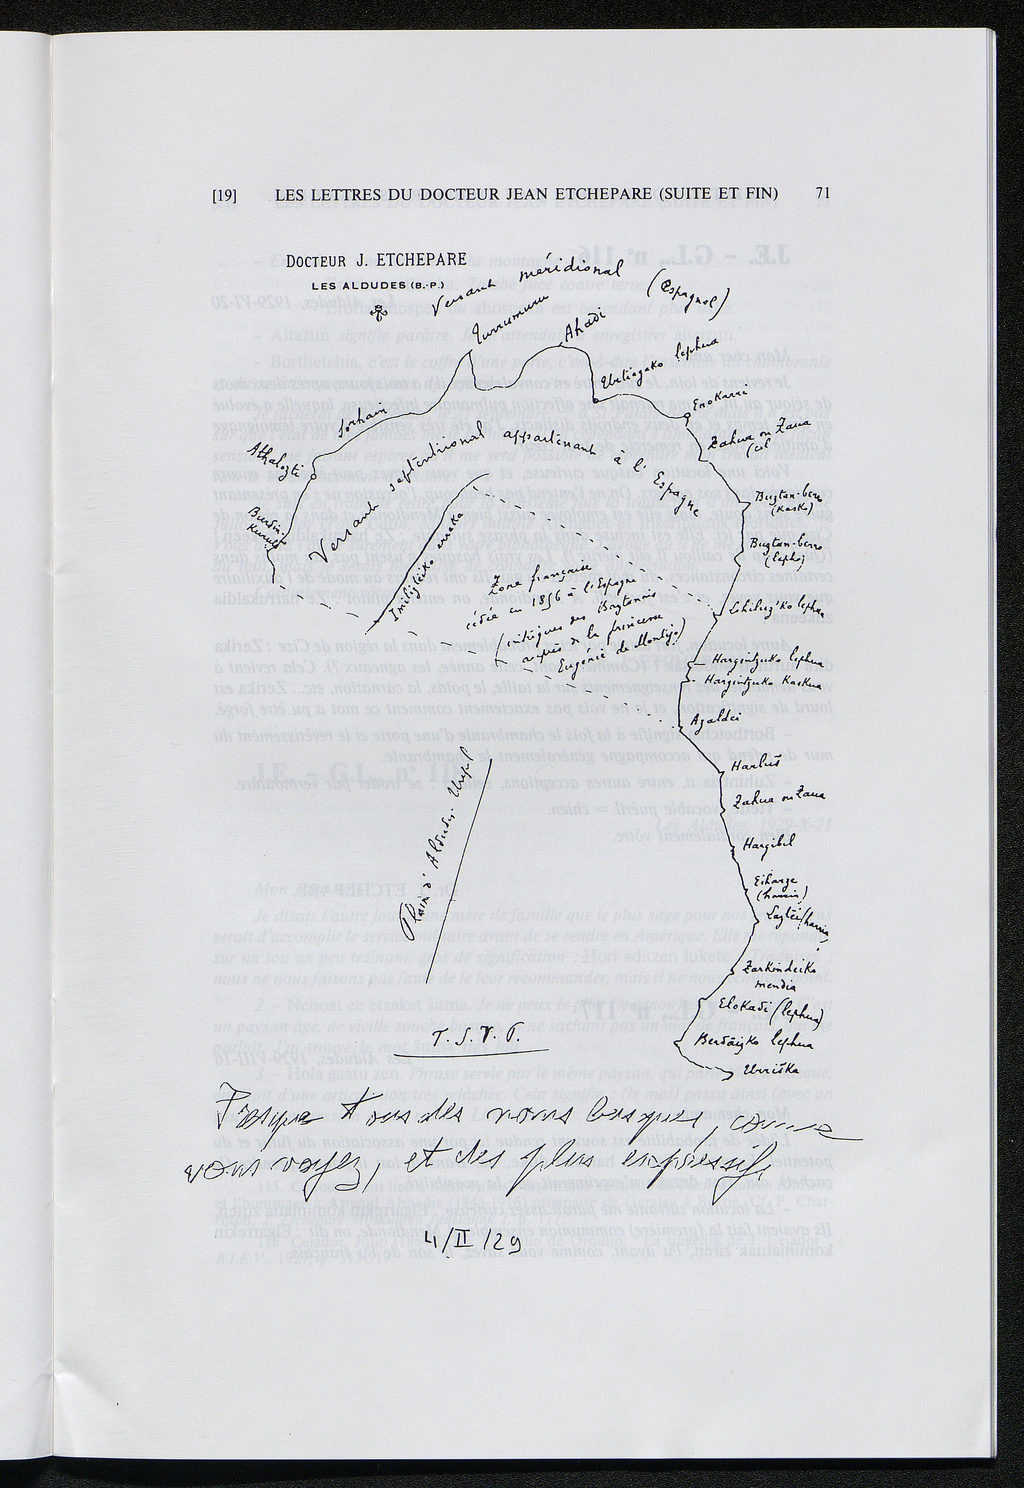 [19] LES LETTRES DU DOCTEUR JEAN ETCHEPARE (SUITE ET FIN) 71
DOCTEUR J. ETCHEPARE
LES ALDUDES (B.-P.)
Versant méridional (Espagnol)
Ahadi
Urtiagako lephua
Enokarri
Zahua ou Zaua
Lorhain
Athalozti
Versant septentrional appartenant à l'Espagne
Buztan-berro
(Kasko)
Buztan-berro
(lepho)
Imiliztéiko erreka
Zone française
cédée en 1856 à l'Espagne
(intrigues des Baztanais
auprès de la princesse
Eugénie de Montijo)
Hargintzuko lephua
Hargintzuko Kaskua
Azaldei
HarluS
Zahua ou Zaua
Hargibel
Eiharze
(harria)
Plain d'Aldudes-Urepel
Zarkindeiko
mendia
Elokadi (lephua)
Berdaizko lephua
Urriska
T.S.V.P.
Presque tous des noms basques, comme
vous voyez, et des plus expressifs
4/II/29